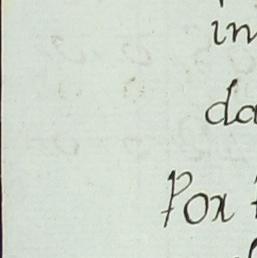 in
da
Pox